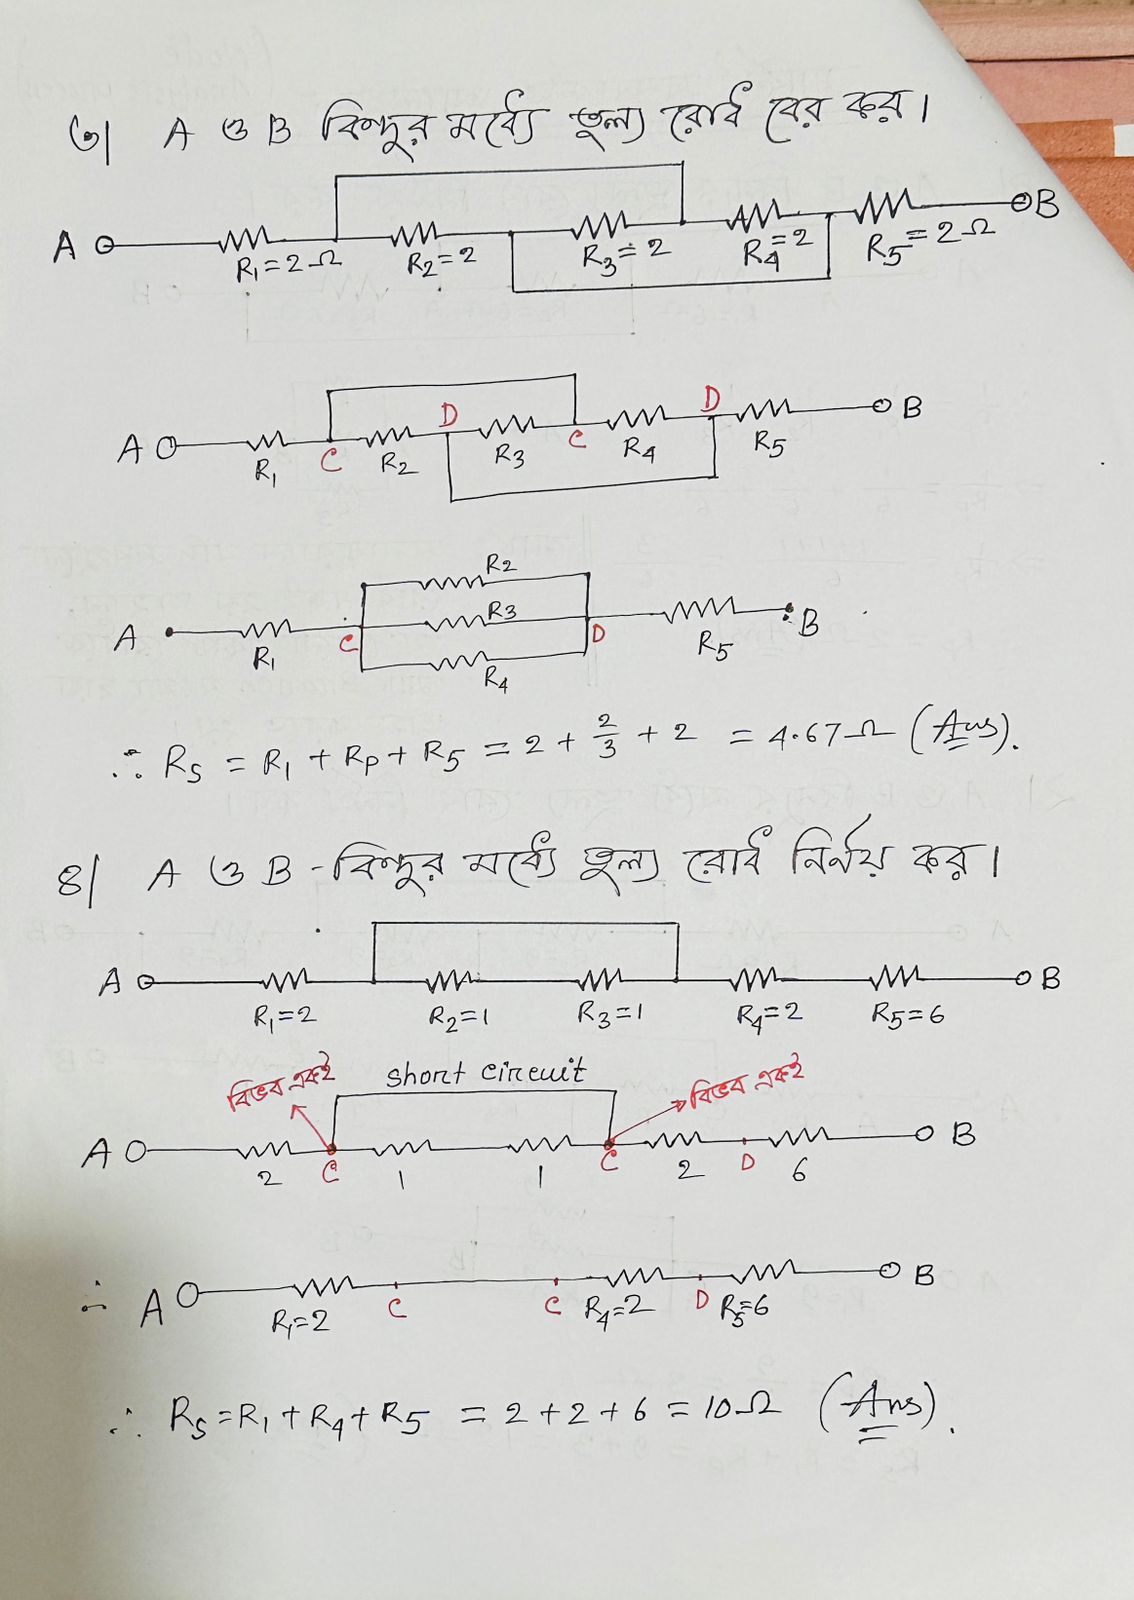 ৩| A ও B বিন্দুর মধ্যে তুল্য রোধ বের কর।
A B
R₁=2Ω R₂=2 R₃=2 R₄=2 R₅=2Ω
D D
A B
R₁ C R₂ R₃ C R₄ R₅
R₂
A R₃ B
R₁ C D R₅
R₄
∴ Rs = R₁ + Rp + R₅ = 2 + 2/3 + 2 = 4.67Ω (Ans).
৪| A ও B-বিন্দুর মধ্যে তুল্য রোধ নির্নয় কর।
A B
R₁=2 R₂=1 R₃=1 R₄=2 R₅=6
বিভব একই short circuit বিভব একই
A B
2 C 1 1 C 2 D 6
∴ A B
R₁=2 C C R₄=2 D R₅=6
∴ Rs=R₁+R₄+R₅ = 2+2+6 = 10Ω (Ans).